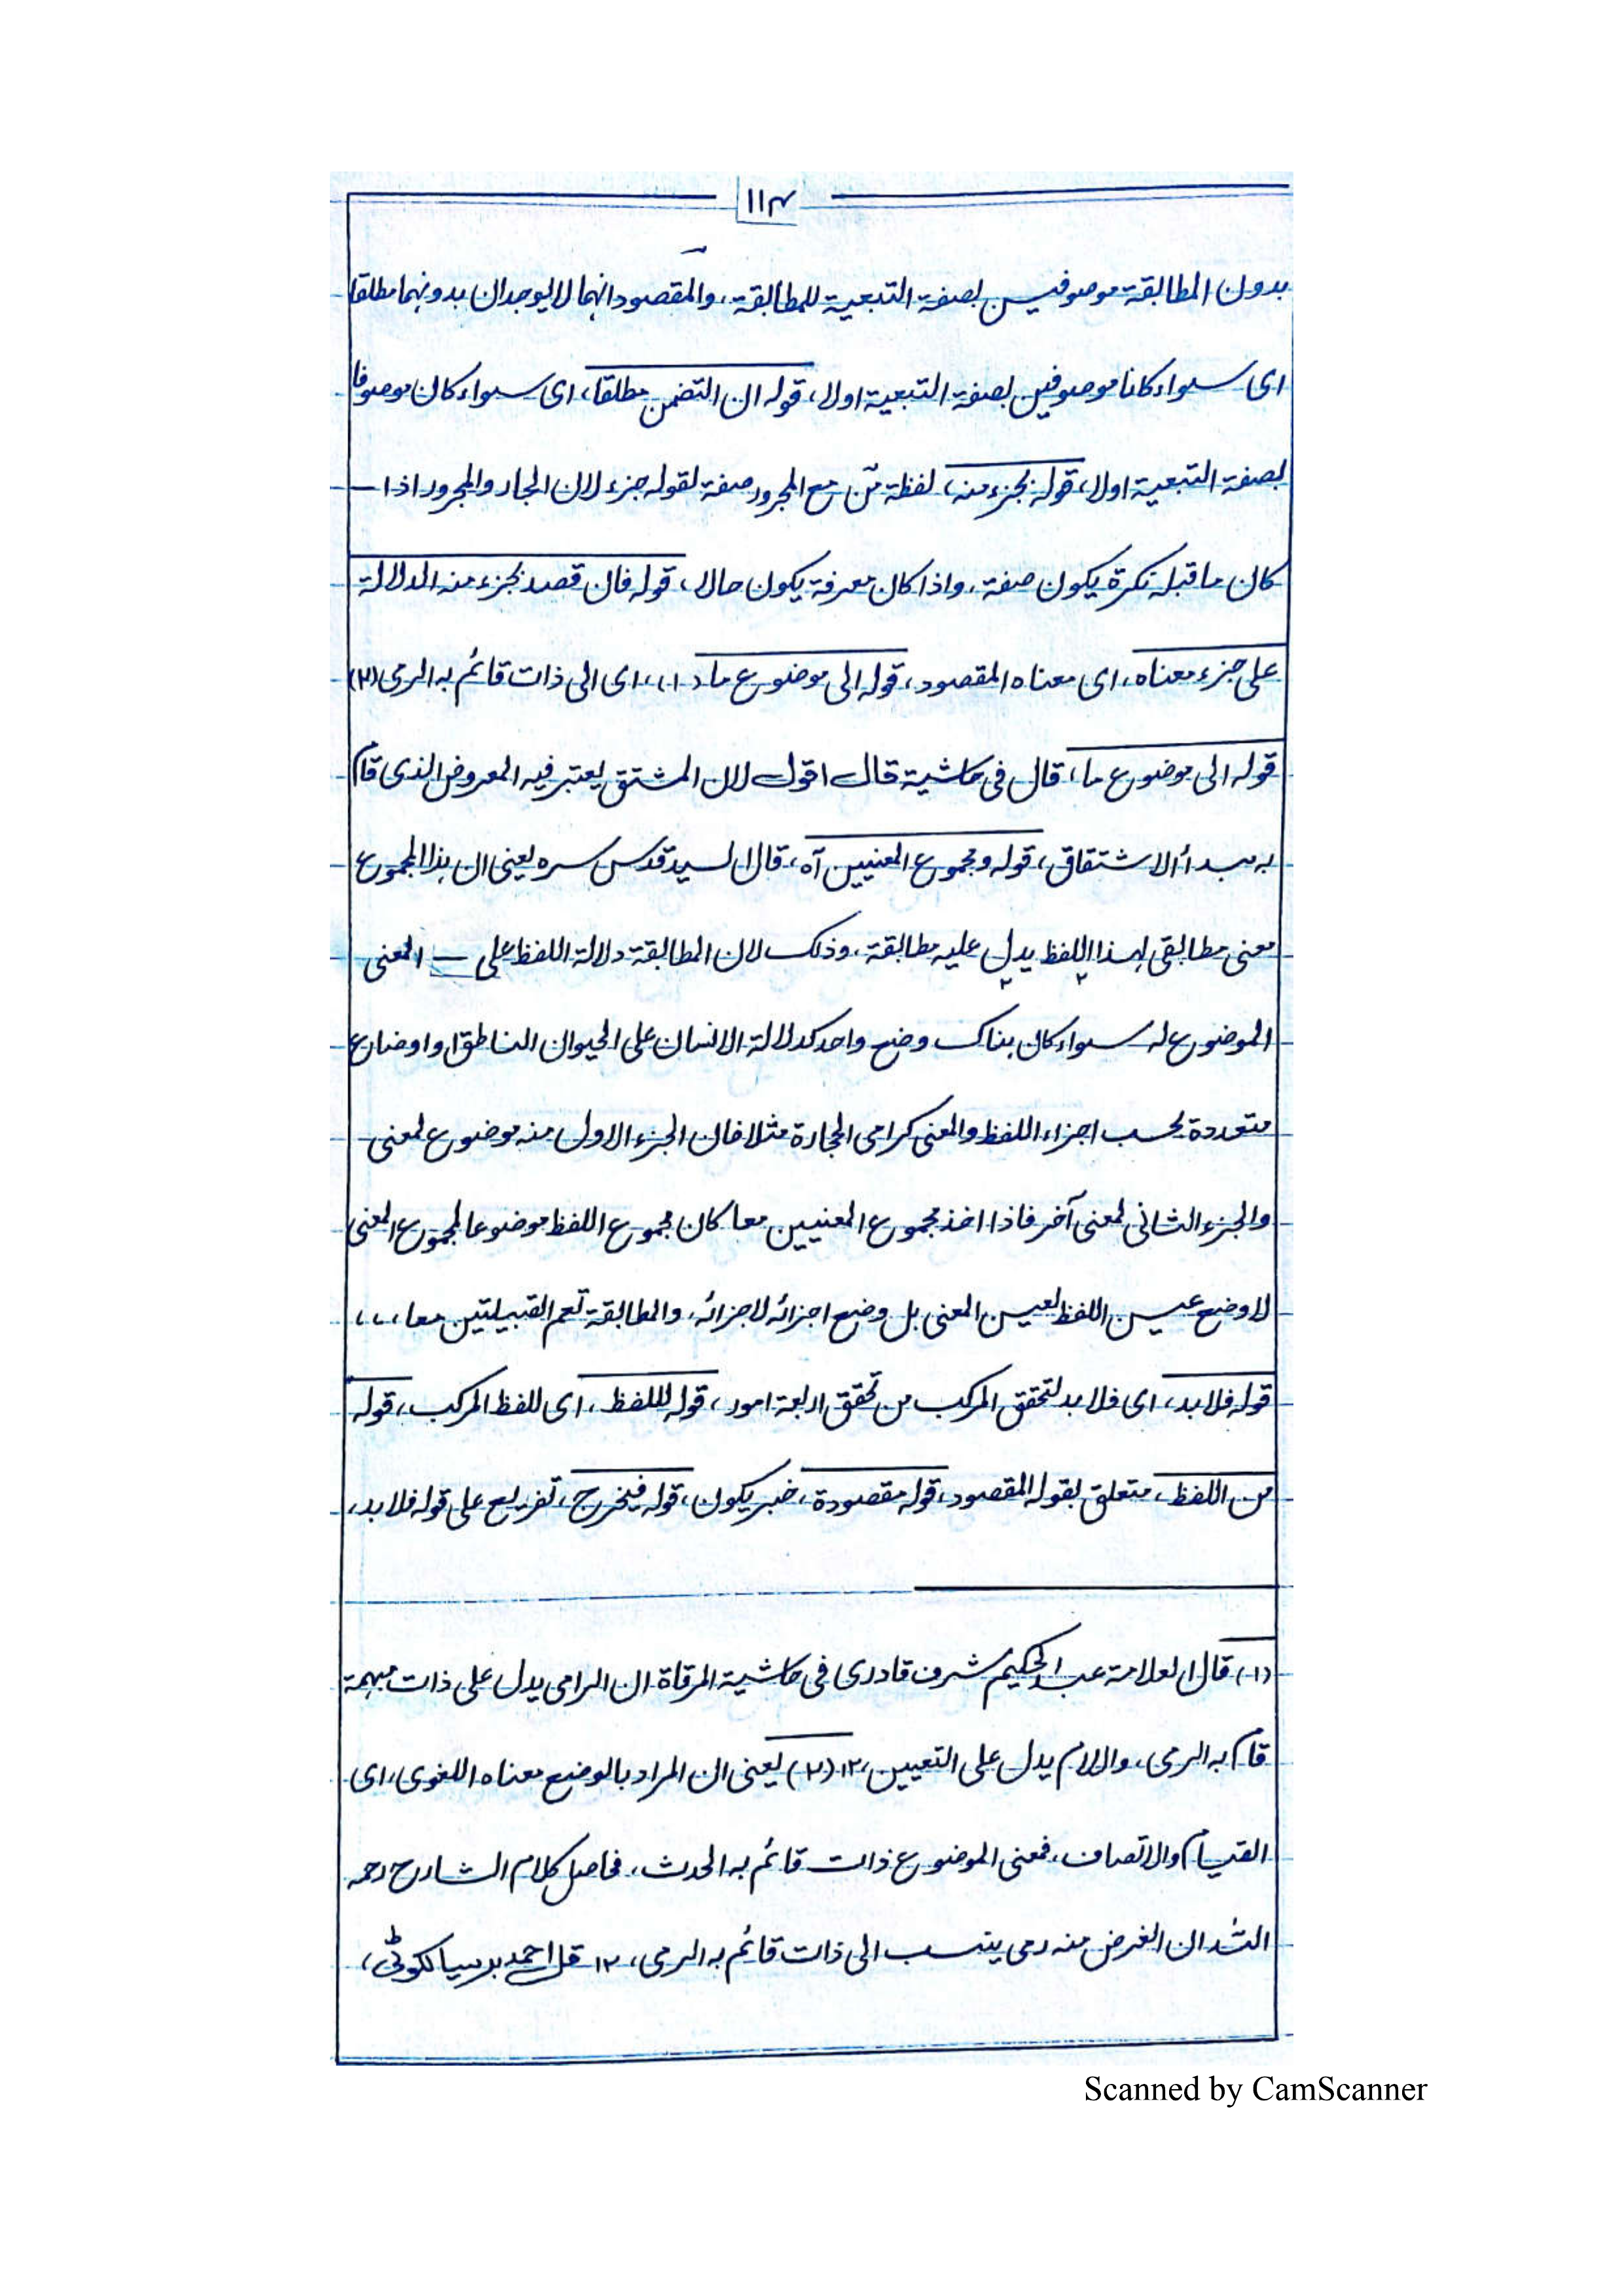 ۱۱۴
بدون المطابقة موصوفين بصفة التبعية للمطابقة، والمقصود انهما لا يوجدان بدونهما مطلقا
ای سواء كانا موصوفين بصفة التبعية اولا، قوله ان التضمن مطلقا، ای سواء كان موصوفا
بصفة التبعية اولا، قوله بجزء منه، لفظة مّن مع المجرور صفة لقوله جزء لان الجار والمجرور اذا —
كان ما قبله نكرة يكون صفة، واذا كان معرفة يكون حالا، قوله فان قصد بجزء منه الدلالة
على جزء معناه، ای معناه المقصود، قوله الى موضوع ما (۱)، ای الى ذات قائم به الرمی (۲)
قوله الى موضوع ما، قال فی حاشية قال اقول لان المشتق يعتبر فيه المعروض الذی قام
به مبدأ الاشتقاق، قوله ومجموع المعنيين آه، قال السيد قدس سره يعنی ان هذا المجموع
معنى مطابقی لهذا اللفظ يدل عليه مطابقة، وذلك لان المطابقة دلالة اللفظ على — المعنى
الموضوع له سواء كان هناك وضع واحد كدلالة الانسان على الحيوان الناطق او اوضاع
متعددة بحسب اجزاء اللفظ والمعنى كرامی الحجارة مثلا فان الجزء الاول منه موضوع لمعنى
والجزء الثانی لمعنى آخر فاذا اخذ مجموع المعنيين معا كان مجموع اللفظ موضوعا لمجموع المعنى
لا وضع عين اللفظ لعين المعنى بل وضع اجزائه لاجزائه، والمطابقة تعم القبيلتين معا،،،
قوله فلا بد، ای فلا بد لتحقق المركب من تحقق اربعة امور، قوله لللفظ، ای للفظ المركب، قوله
من اللفظ، متعلق بقوله المقصود، قوله مقصودة، خبر يكون، قوله فيخرج، تفريع على قوله فلا بد،
(۱) قال العلامة عبد الحكيم شرف قادری فی حاشية المرقاة ان الرامی يدل على ذات مبهمة
قام به الرمی، واللام يدل على التعيين، ۱۲ (۲) يعنی ان المراد بالوضع معناه اللغوی، ای
القيام والاتصاف، فمعنى الموضوع ذات قائم به الحدث، فحاصل كلام الشارح رحمه
الله ان الغرض منه رمی ينسب الى ذات قائم به الرمی، ۱۲ احمد سيالكوٹی،
Scanned by CamScanner